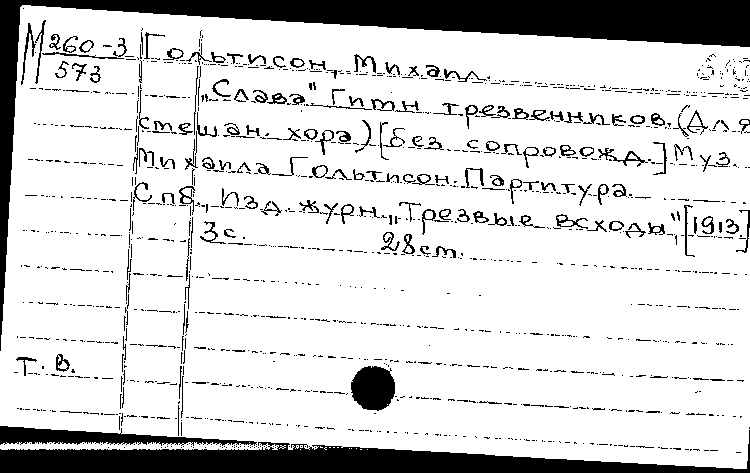 М 260-3
573
Гольтисон, Михаил.
„Слава" Гимн трезвенников. (Для
смешан. хора) [без сопровожд.] Муз.
Михаила Гольтисон. Партитура.
Спб., Изд. журн. „Трезвые всходы", [1913]
3с. 28см.
Т. В.